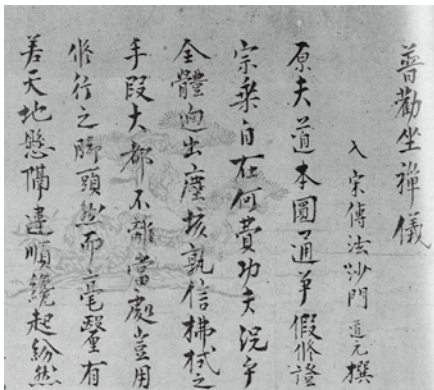 普勸坐禪儀
入宋傳法沙門 道元 撰
原夫道本圓通爭假修證
宗乗自在何費功夫況乎
全體逈出塵埃孰信拂拭之
手段大都不離當處豈用
修行之脚頭然而毫釐有
差天地懸隔違順纔起紛然